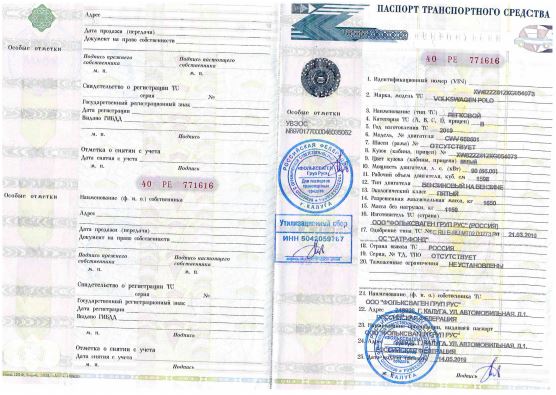 Адрес
Дата продажи (передачи)
Документ на право собственности
Особые отметки
Подпись прежнего собственника
Подпись настоящего собственника
М. П.
М. П.
Свидетельство о регистрации ТС
серия №
Государственный регистрационный знак
Дата регистрации
Выдано ГИБДД
М. П.
Подпись
Отметка о снятии с учета
Дата снятия с учета
М. П.
Подпись
40 РЕ 771616
Особые отметки
Наименование (ф. и. о.) собственника
Адрес
Дата продажи (передачи)
Документ на право собственности
Подпись прежнего собственника
Подпись настоящего собственника
М. П.
М. П.
Свидетельство о регистрации ТС
серия №
Государственный регистрационный знак
Дата регистрации
Выдано ГИБДД
М. П.
Подпись
Отметка о снятии с учета
Дата снятия с учета
М. П.
Подпись
ПАСПОРТ ТРАНСПОРТНОГО СРЕДСТВА
40 РЕ 771616
Особые отметки
УВЭОС
РОССИЙСКАЯ ФЕДЕРАЦИЯ
Фольксваген
Груп Рус
Для паспортов
транспортных
средств
г. КАЛУГА
Утилизационный сбор
ИНН 5042059767
1. Идентификационный номер (VIN)
2. Марка, модель ТС VOLKSWAGEN POLO
3. Наименование (тип ТС) ЛЕГКОВОЙ
4. Категория ТС (А, В, С, D, прицеп) В
5. Год изготовления ТС 2019
6. Модель, № двигателя CWV
7. Шасси (рама) № ОТСУТСТВУЕТ
8. Кузов (кабина, прицеп) №
9. Цвет кузова (кабины, прицепа) БЕЛЫЙ
10. Мощность двигателя, л. с. (кВт) 90
11. Рабочий объем двигателя, куб. см 1598
12. Тип двигателя БЕНЗИНОВЫЙ НА БЕНЗИНЕ
13. Экологический класс ПЯТЫЙ
14. Разрешенная максимальная масса, кг 1650
15. Масса без нагрузки, кг 1150
16. Изготовитель ТС (страна)
ООО "ФОЛЬКСВАГЕН ГРУП РУС" (РОССИЯ)
17. Одобрение типа ТС № от 21.03.2018
ОС "САТРФОНД"
18. Страна вывоза ТС РОССИЯ
19. Серия, № ТД, ТПО ОТСУТСТВУЕТ
20. Таможенные ограничения НЕ УСТАНОВЛЕНЫ
21. Наименование (ф. и. о.) собственника ТС
ООО "ФОЛЬКСВАГЕН ГРУП РУС"
22. Адрес 248926, Г. КАЛУГА, УЛ. АВТОМОБИЛЬНАЯ, Д.1,
РОССИЙСКАЯ ФЕДЕРАЦИЯ
23. Наименование организации, выдавшей паспорт
ООО "ФОЛЬКСВАГЕН ГРУП РУС"
24. Адрес 248926, Г. КАЛУГА, УЛ. АВТОМОБИЛЬНАЯ, Д.1,
РОССИЙСКАЯ ФЕДЕРАЦИЯ
25. Дата выдачи паспорта 14.05.2019
М. П.
Подпись